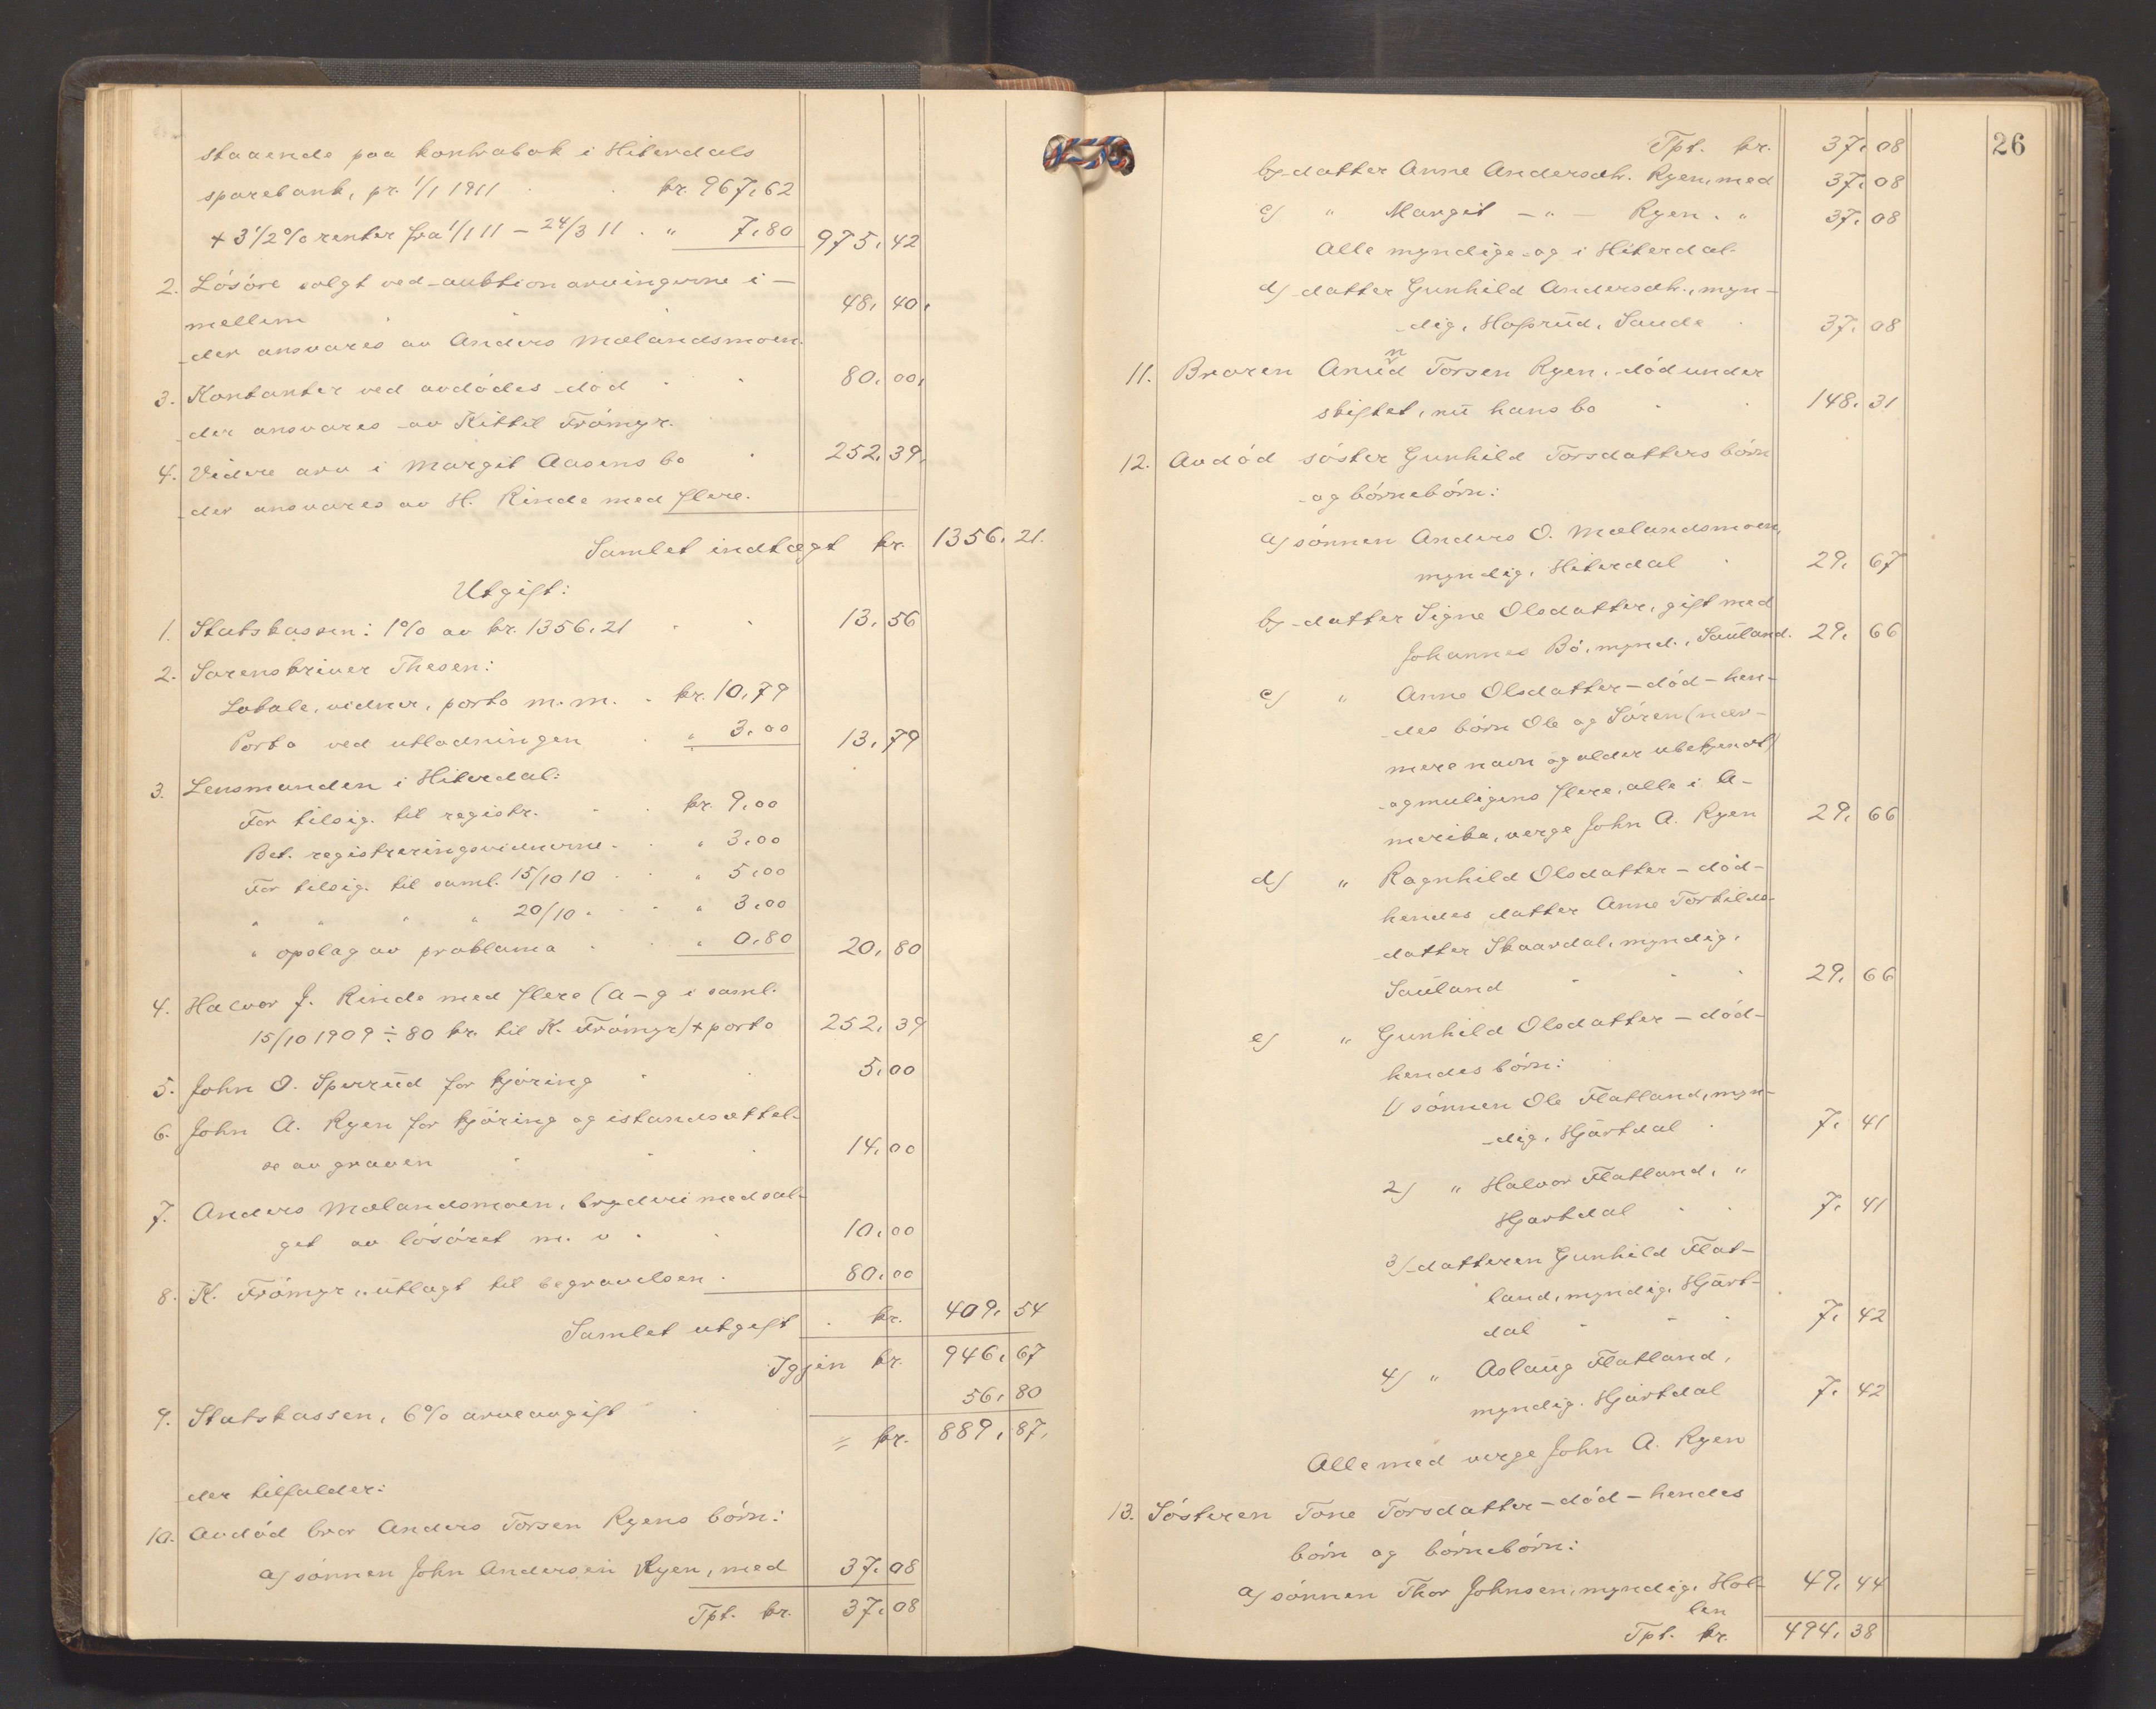 staaende paa kontrabok i Hiterdals
sparebank, pr. 1/1 1911 kr. 967,62
+ 3 1/2 % renter fra 1/1 11 — 24/3 11 . " 7,80 975,42
2. Lösöre solgt ved auktion arvingerne i-
mellem 48,40,
der ansvares av Anders Mælandsmoen.
3. Kontanter ved avdödes död 80,00,
der ansvares av Kittil Frömyr.
4. Videre arv i Margit Aasens bo 252,39,
der ansvares av H. Rinde med flere.
Samlet indtægt kr. 1356,21.
Utgift:
1. Statskassen: 1% av kr. 1356,21 13,56
2. Sorenskriver Thesen:
Lokale, vidner, porto m.m. . kr. 10,79
Porto ved utlodningen " 3,00 13,79
3. Lensmanden i Hiterdal:
For tilsig. til registr. kr. 9,00
Bet. registreringsvidnerne . " 3,00
For tilsig. til saml. 15/10 10 " 5,00
" " " " 20/10 . " 3,00
" opslag av proklama " 0,80 20,80
4. Halvor J. Rinde med flere (a-g i saml.
15/10 1909 ÷ 80 kr. til K. Frömyr) + porto 252,39
5. John O. Sperrud for kjöring 5,00
6. John A. Ryen for kjöring og istandsættel-
se av graven 14,00
7. Anders Mælandsmoen, bryderi med sal-
get av lösöret m. v. 10,00
8. K. Frömyr, utlagt til begravelsen . 80,00
Samlet utgift . kr. 409,54
Igjen kr. 946,67
9. Statskassen, 6% arveavgift 56,80
= kr. 889,87,
der tilfalder:
10. Avdöd bror Anders Torsen Ryens börn:
a) sönnen John Andersen Ryen, med 37,08
Tpt. kr. 37,08
26
Tpt. kr. 37,08
b) datter Anne Andersdtr. Ryen, med 37,08
c) " Margit — " — Ryen. " 37,08
Alle myndige og i Hiterdal.
d) datter Gunhild Andersdtr., myn-
dig, Hafsrud, Saude . 37,08
11. Broren Anund Torsen Ryen, död under
skiftet, nu hans bo 148,31
12. Avdöd söster Gunhild Torsdatters börn
og börnebörn:
a) sönnen Anders O. Mælandsmoen,
myndig, Hiterdal 29,67
b) datter Signe Olsdatter, gift med
Johannes Bö, mynd., Sauland. 29,66
c) " Anne Olsdatter - död - hen-
des börn Ole og Sören (nær-
mere navn og alder ubekjendt)
og muligens flere, alle i A-
merika, verge John A. Ryen 29,66
d) " Ragnhild Olsdatter - död -
hendes datter Anne Torkilds-
datter Skaardal, myndig,
Sauland 29,66
e) " Gunhild Olsdatter - död -
hendes börn:
1) sönnen Ole Flatland, myn-
dig, Hjartdal . 7,41
2) " Halvor Flatland, "
Hjartdal 7,41
3) datteren Gunhild Flat-
land, myndig, Hjart-
dal 7,42
4) " Aslaug Flatland,
myndig, Hjartdal 7,42
Alle med verge John A. Ryen
13. Sösteren Tone Torsdatter - död - hendes
börn og börnebörn:
a) sönnen Thor Johnsen, myndig, Hol- 49,44
len
Tpt. kr. 494,38